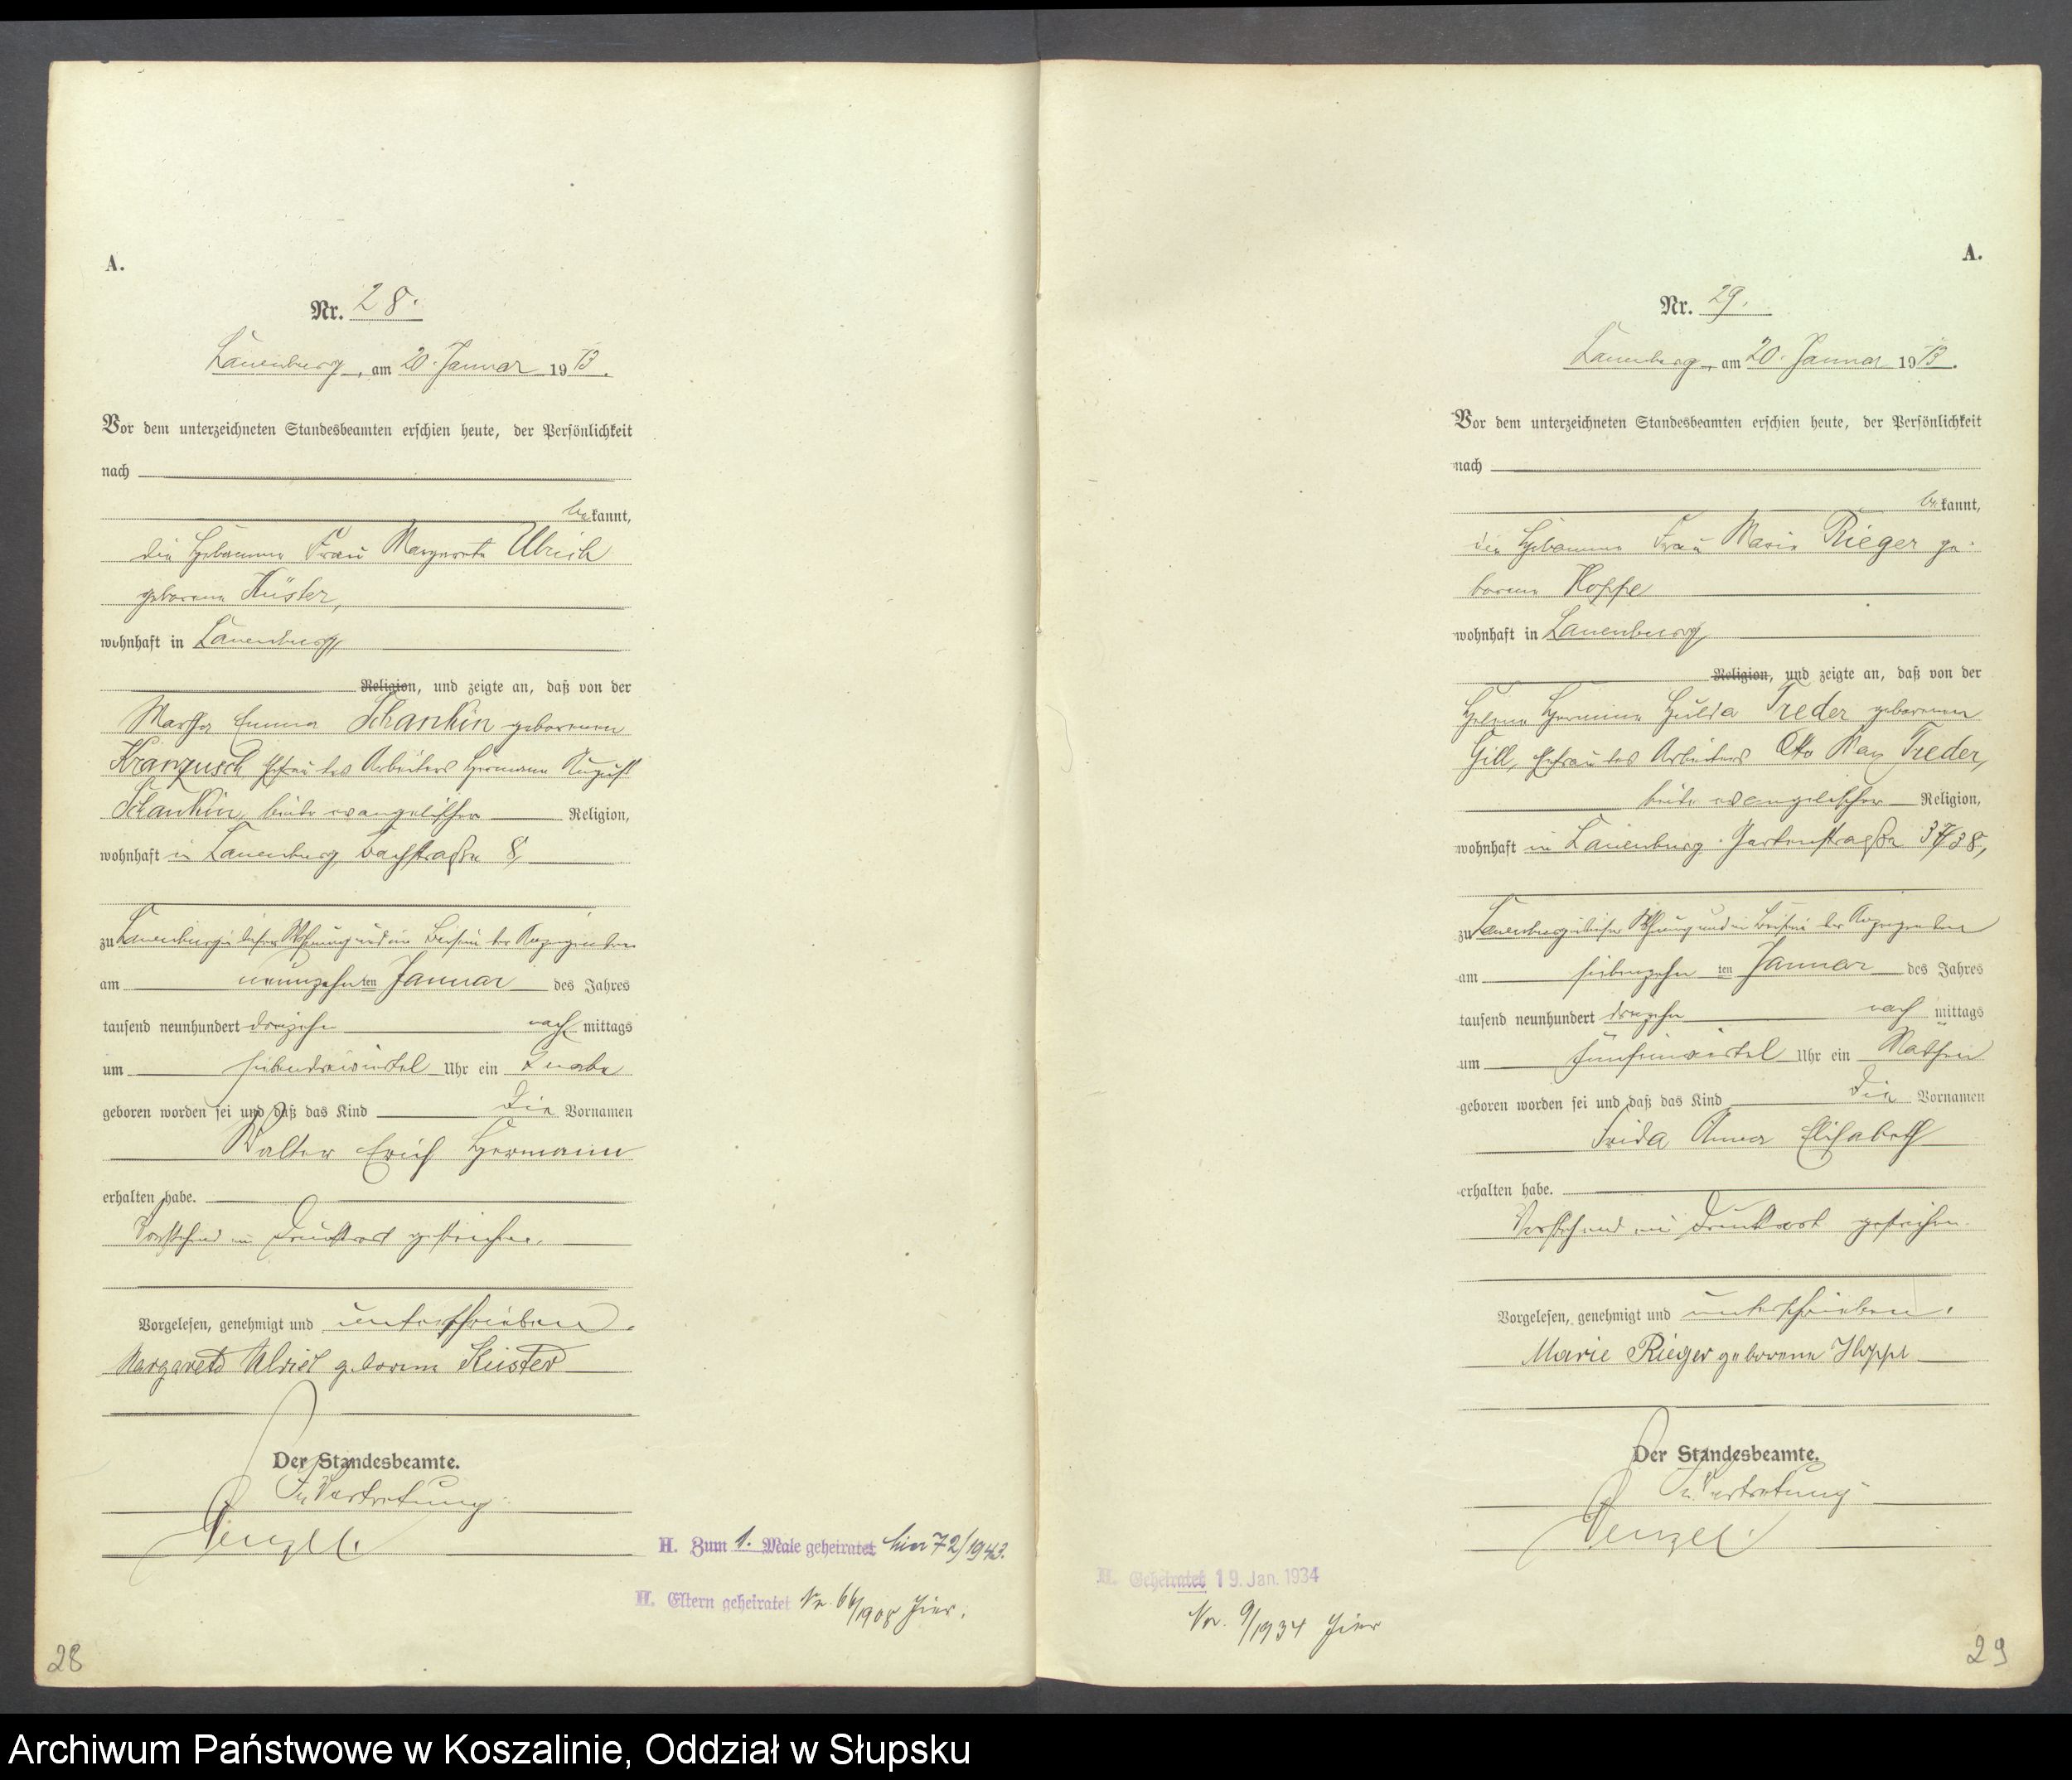 A.
Nr. 28.
Lauenburg, am 20. Januar 1913.
Vor dem unterzeichneten Standesbeamten erschien heute, der Persönlichkeit
nach
bekannt,
die Hebamme Frau Margarete Ulrich
geborene Küster,
wohnhaft in Lauenburg,
Religion, und zeigte an, daß von der
Martha Emma Schankin geborenen
Kranzusch Ehefrau des Arbeiters Hermann August
Schankin, beide evangelischer Religion,
wohnhaft in Lauenburg, Bachstraße 8,
zu Lauenburg in dieser Wohnung und im Beisein der Anzeigenden
am neunzehnten Januar des Jahres
tausend neunhundert dreizehn nachmittags
um siebendreiviertel Uhr ein Knabe
geboren worden sei und daß das Kind die Vornamen
Walter Erich Hermann
erhalten habe.
Vorstehend ein Druckwort gestrichen.
Vorgelesen, genehmigt und unterschrieben.
Margarete Ulrich geborene Küster
Der Standesbeamte.
In Vertretung.
Wenzel.
H. Zum 1. Male geheiratet hier 72/1943.
H. Eltern geheiratet Nr. 66/1908 hier.
28
A.
Nr. 29.
Lauenburg, am 20. Januar 1913.
Vor dem unterzeichneten Standesbeamten erschien heute, der Persönlichkeit
nach
bekannt,
die Hebamme Frau Marie Rieger ge-
borene Hoppe
wohnhaft in Lauenburg,
Religion, und zeigte an, daß von der
Helene Hermine Hulda Treder geborenen
Gill, Ehefrau des Arbeiters Otto Max Treder,
beide evangelischer Religion,
wohnhaft in Lauenburg Gartenstraße 37/38,
zu Lauenburg in dieser Wohnung und im Beisein der Anzeigenden
am siebenzehnten Januar des Jahres
tausend neunhundert dreizehn nachmittags
um fünfeinviertel Uhr ein Mädchen
geboren worden sei und daß das Kind die Vornamen
Frida Anna Elisabeth
erhalten habe.
Vorstehend ein Druckwort gestrichen.
Vorgelesen, genehmigt und unterschrieben.
Marie Rieger geborene Hoppe
Der Standesbeamte.
In Vertretung.
Wenzel.
H. Geheiratet 19. Jan. 1934
Nr. 9/1934 hier
29
Archiwum Państwowe w Koszalinie, Oddział w Słupsku